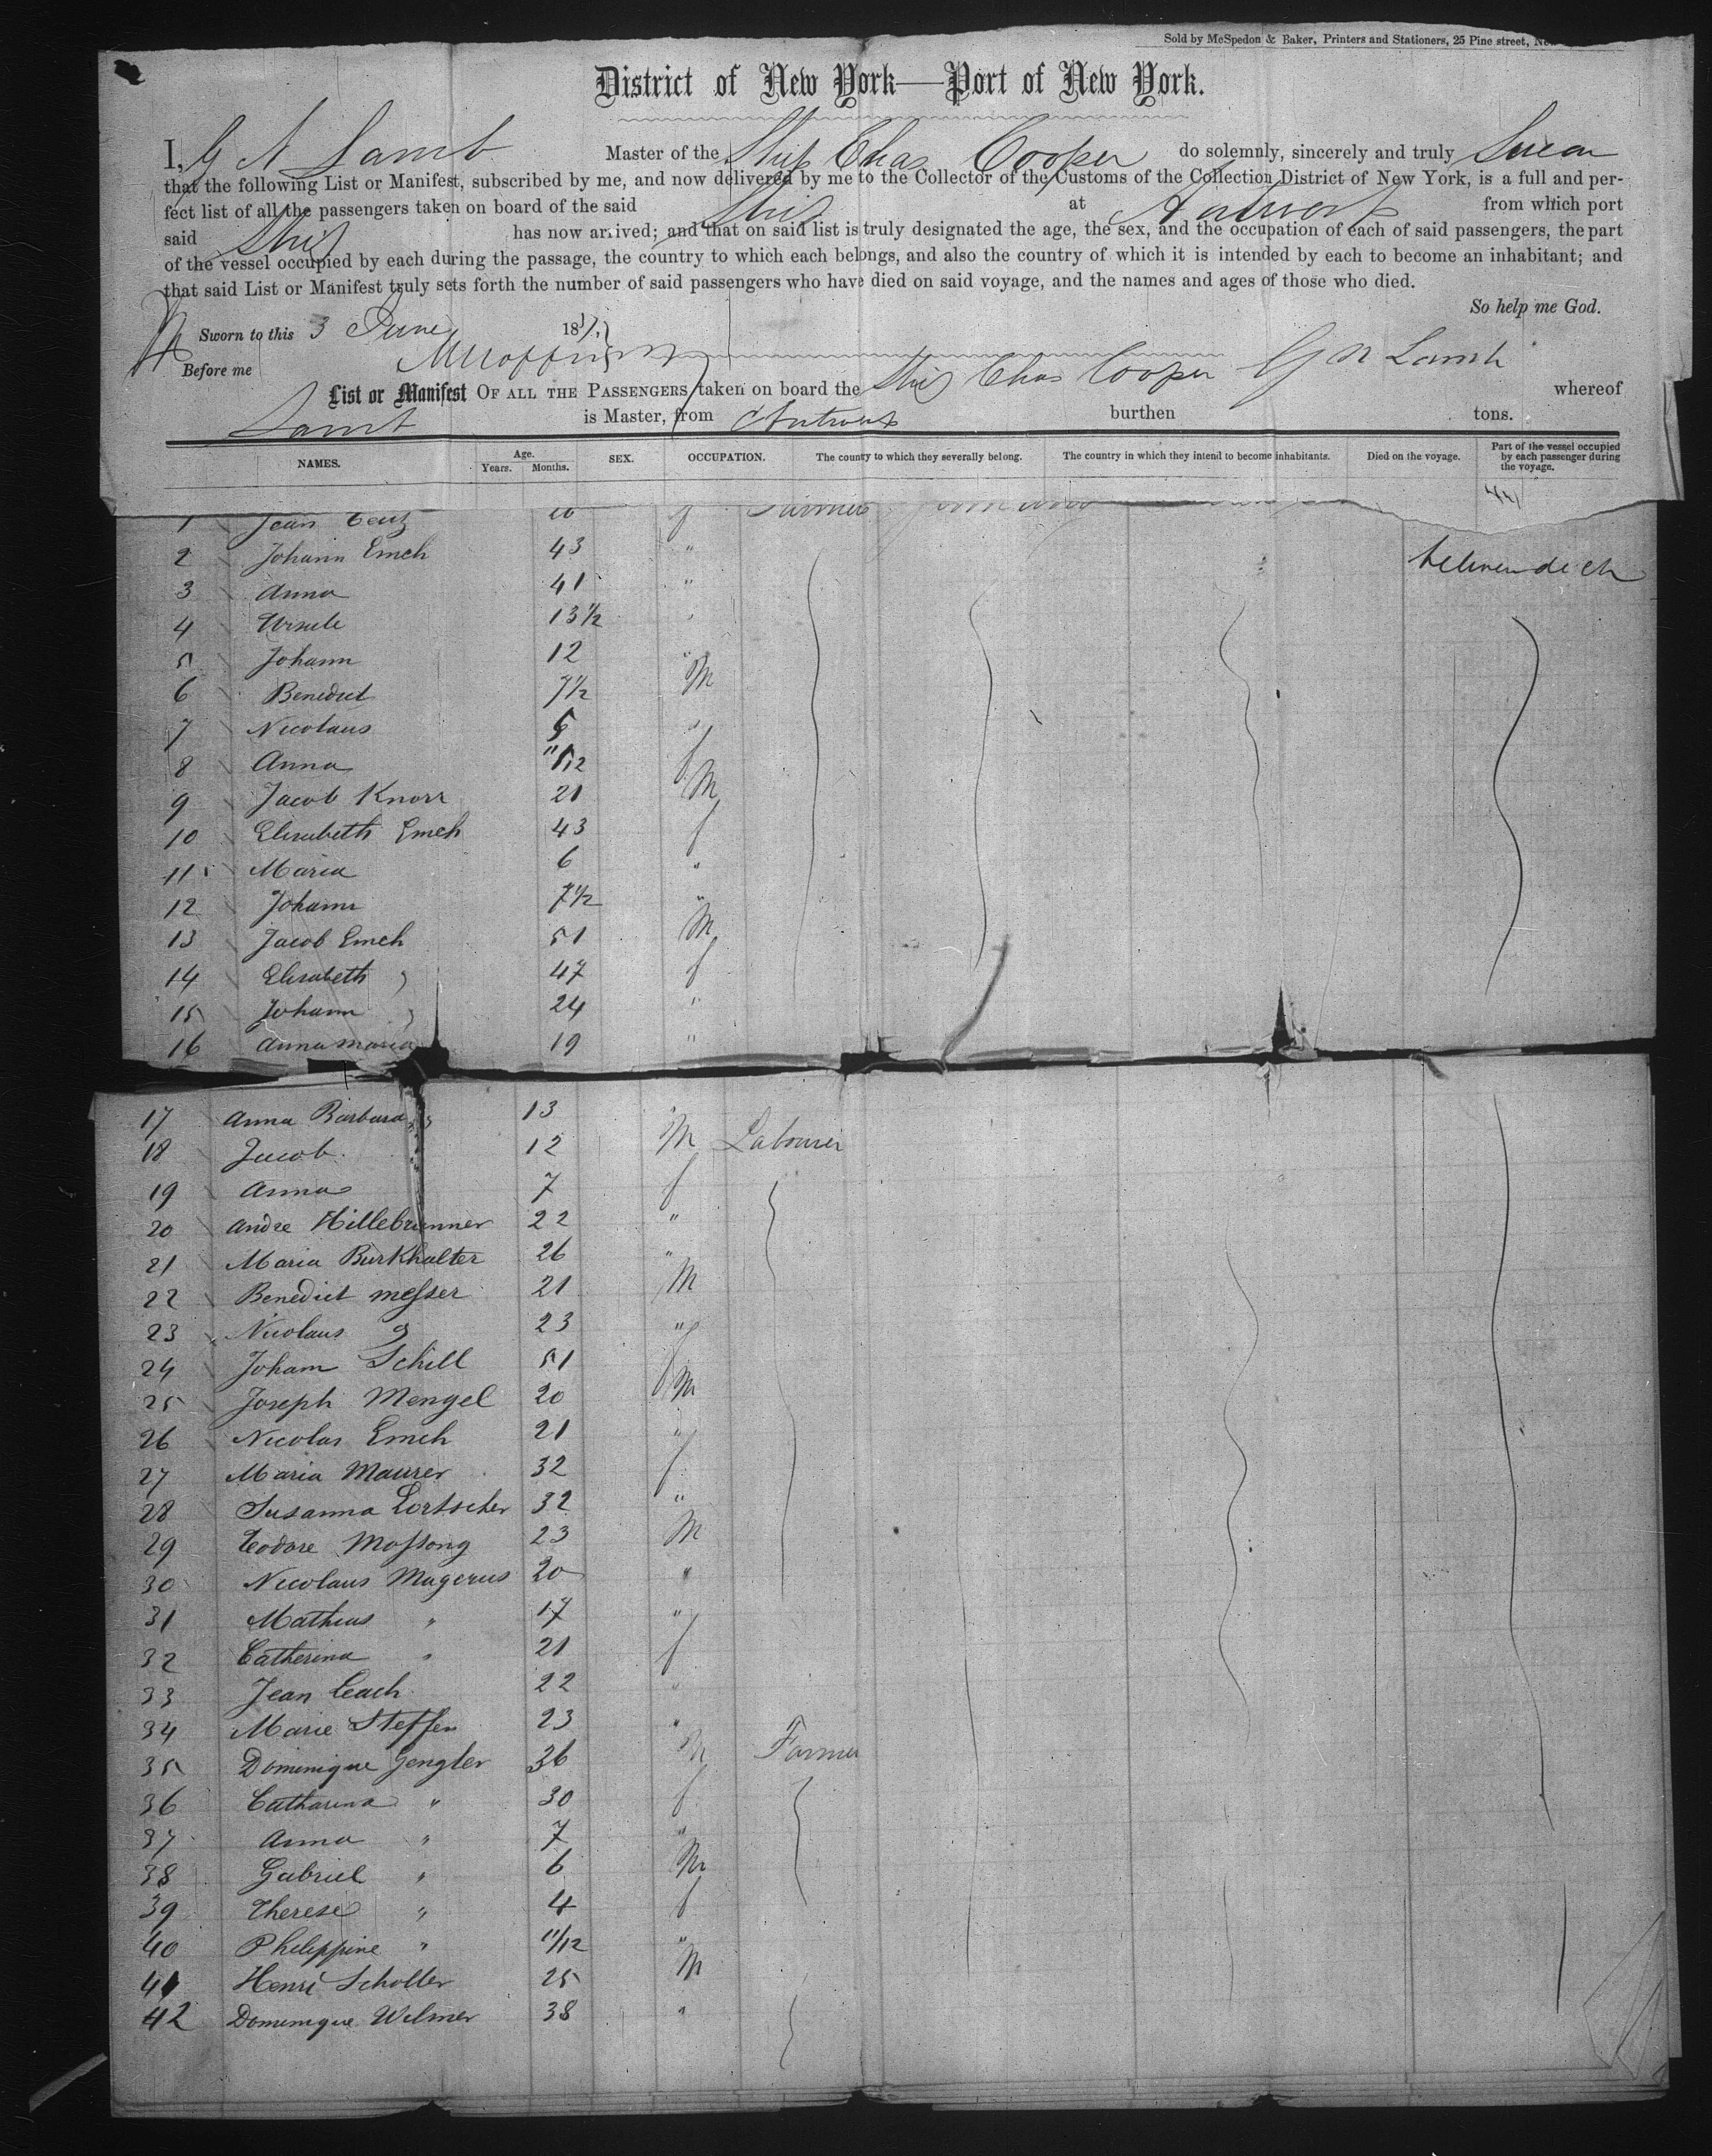 Sold by McSpedon & Baker, Printers and Stationers, 25 Pine street,
District of New York—Port of New York.
I, G N Lamb Master of the Ship Chas Cooper do solemnly, sincerely and truly Swear
that the following List or Manifest, subscribed by me, and now delivered by me to the Collector of the Customs of the Collection District of New York, is a full and per-
fect list of all the passengers taken on board of the said Ship at Antwerp from which port
said Ship has now arrived; and that on said list is truly designated the age, the sex, and the occupation of each of said passengers, the part
of the vessel occupied by each during the passage, the country to which each belongs, and also the country of which it is intended by each to become an inhabitant; and
that said List or Manifest truly sets forth the number of said passengers who have died on said voyage, and the names and ages of those who died.
So help me God.
Sworn to this 3 June 18
Before me G N Lamb
List or Manifest OF ALL THE PASSENGERS taken on board the Ship Chas Cooper whereof
Lamb is Master, from Antwerp burthen tons.
NAMES. Age. Years. Months. SEX. OCCUPATION. The county to which they severally belong. The country in which they intend to become inhabitants. Died on the voyage. Part of the vessel occupied by each passenger during the voyage.
1 Jean Farmer
2 Johann Emch 43 "
3 Anna 41 "
4 Ursule 13½ "
5 Johann 12 "
6 Benedict 7½ M
7 Nicolaus 5 "
8 Anna f
9 Jacob Knorr 21 M
10 Elisabeth Emch 43 f
11 Maria 6 "
12 Johann 7½ "
13 Jacob Emch 51 M
14 Elisabeth 47 f
15 Johann 24 "
16 Anna Maria 19 "
17 Anna Barbara 13
18 Jacob 12 M Labourer
19 Anna 7 f
20 Andre Hillebrunner 22 "
21 Maria Burkhalter 26 "
22 Benedict Messer 21 M
23 Nicolaus 23 "
24 Joham Schill 51 f
25 Joseph Mengel 20 M
26 Nicolas Emch 21 "
27 Maria Maurer 32 f
28 Susanna Lortscher 32 "
29 Teodore Mossong 23 M
30 Nicolaus Magerus 20 "
31 Matheus " 17 "
32 Catherina " 21 f
33 Jean Ceach 22 "
34 Marie Steffen 23 "
35 Dominique Gengler 36 M Farmer
36 Catharina " 30 f
37 Anna " 7 "
38 Gabriel " 6 M
39 Therese " 4 f
40 Philippine " 11/12 "
41 Henri Scholler 25 M
42 Domenique Wilmer 38 "